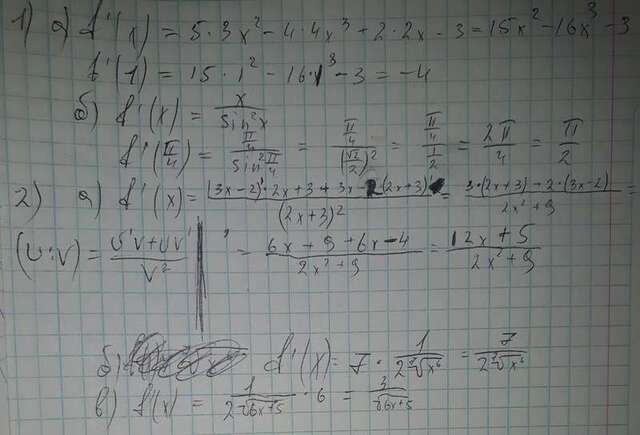 1) а) f'(x) = 5·3x² - 4·4x³ + 2·2x - 3 = 15x² - 16x³ - 3
f'(1) = 15·1² - 16·1³ - 3 = -4
б) f'(x) = x/sin²x
f'(π/4) = (π/4)/(sin² π/4) = (π/4)/(√2/2)² = (π/4)/(1/2) = 2π/4 = π/2
2) а) f'(x) = ((3x-2)'·2x+3+3x-2·(2x+3)')/(2x+3)² = (3·(2x+3)-2·(3x-2))/(2x²+9) =
(u:v)' = (u'v+uv')/v² = (6x+9+6x-4)/(2x²+9) = (12x+5)/(2x²+9)
б) f'(x) = 7·1/(2√x⁶) = 7/(2√x⁶)
в) f'(x) = 1/(2√6x+5)·6 = 3/√6x+5